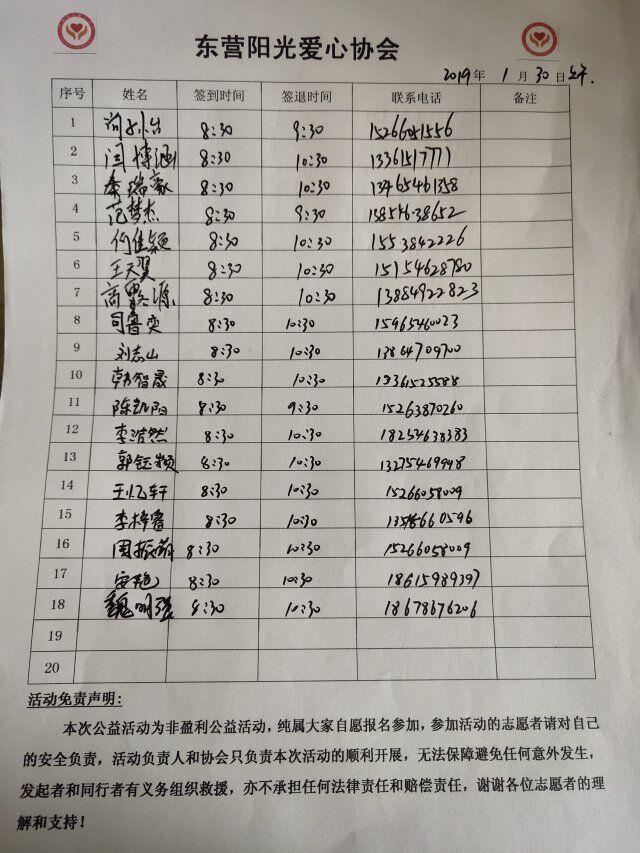 东营阳光爱心协会
2019年 1月30日上午.
序号 姓名 签到时间 签退时间 联系电话 备注
1 8:30 9:30
2 闫博涵 8:30 10:30 13361517771
3 李瑞豪 8:30 10:30 13465461358
4 范梦杰 8:30 9:30 13854638652
5 何佳颖 8:30 10:30 1553842226
6 王天翼 8:30 10:30 15154628780
7 高 源 8:30 10:30 13884922823
8 司鲁奕 8:30 10:30 15965460023
9 刘志山 8:30 10:30 13864709700
10 韩智晟 8:30 10:30 13361525588
11 陈凯阳 8:30 9:30 15263870260
12 李浩然 8:30 10:30 18254638383
13 郭钰颖 8:30 10:30 13275469948
14 王忆轩 8:30 10:30 15266058009
15 李梓睿 8:30 10:30
16 周振 8:30 10:30 15266058009
17 8:30 10:30 18615989397
18 魏明强 8:30 10:30 18678676206
19
20
活动免责声明:
本次公益活动为非盈利公益活动，纯属大家自愿报名参加，参加活动的志愿者请对自己
的安全负责，活动负责人和协会只负责本次活动的顺利开展，无法保障避免任何意外发生，
发起者和同行者有义务组织救援，亦不承担任何法律责任和赔偿责任，谢谢各位志愿者的理
解和支持！